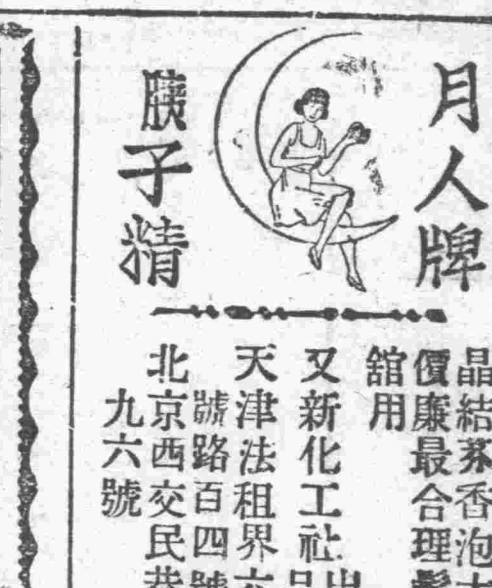 月人牌
胰子精
晶結茶香泡
價廉最合理髮
舘用
又新化工社出
天津法租界六
號路百四號
北京西交民巷
九六號